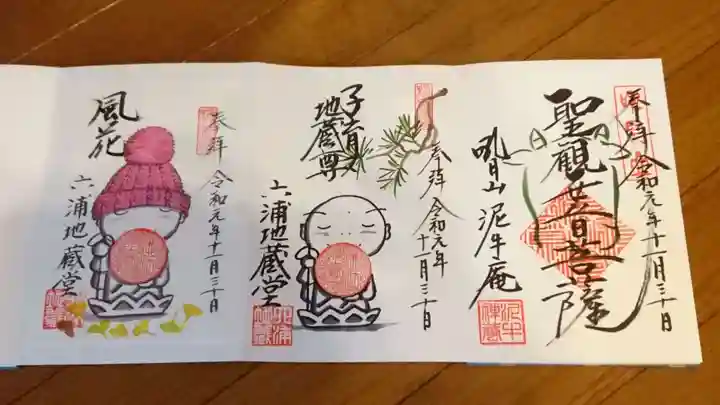 奉拝 令和元年十一月三十日
聖観世音菩薩
吼月山 泥牛庵
奉拝 令和元年十一月三十日
子育地蔵尊
六浦地蔵堂
奉拝 令和元年十一月三十日
風花
六浦地蔵堂